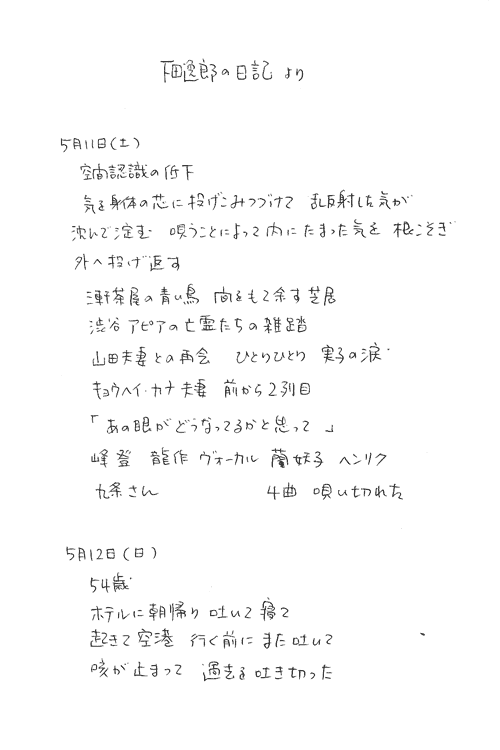 下田逸郎の日記 より
5月11日(土)
空間認識の低下
気を身体の芯に投げこみつづけて 乱反射した気が
沈んで淀む 唄うことによって内にたまった気を 根こそぎ
外へ投げ返す
三軒茶屋の青い鳥 間をもて余す芝居
渋谷アピアの亡霊たちの雑踏
山田夫妻との再会 ひとりひとり 実子の涙
キョウヘイ・カナ夫妻 前から2列目
「あの眼がどうなってるかと思って」
峰登 龍作 ヴォーカル 蘭妖子 ヘンリク
九条さん 4曲 唄い切れた
5月12日(日)
54歳
ホテルに朝帰り 吐いて寝て
起きて空港 行く前にまた吐いて
咳が止まって 過去を吐き切った